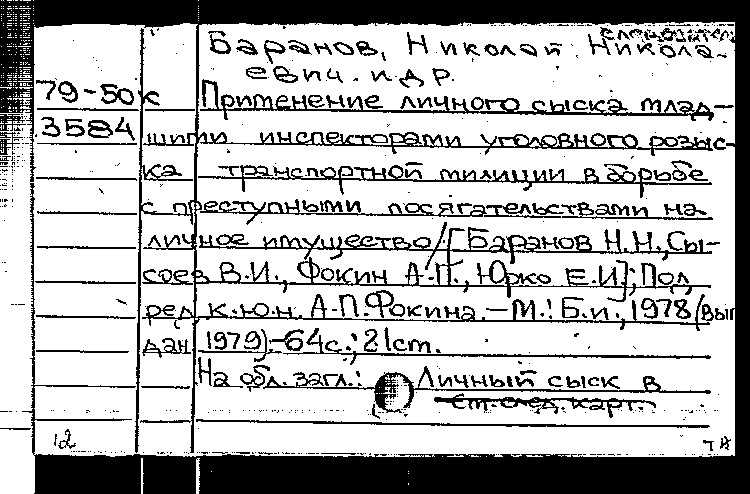 следователи
Баранов, Николай Никола-
евич. и др.
79-50к Применение личного сыска млад-
3584 шими инспекторами уголовного розыс-
ка транспортной милиции в борьбе
с преступными посягательствами на
личное имущество/[Баранов Н.Н., Сы-
соев В.И., Фокин А.П., Юрко Е.И]; Под
ред. к.ю.н. А.П. Фокина. - М.: Б.и., 1978 (вып
дан 1979).-64с.; 21см.
На обл. загл.: Личный сыск в
См. след. карт.
12